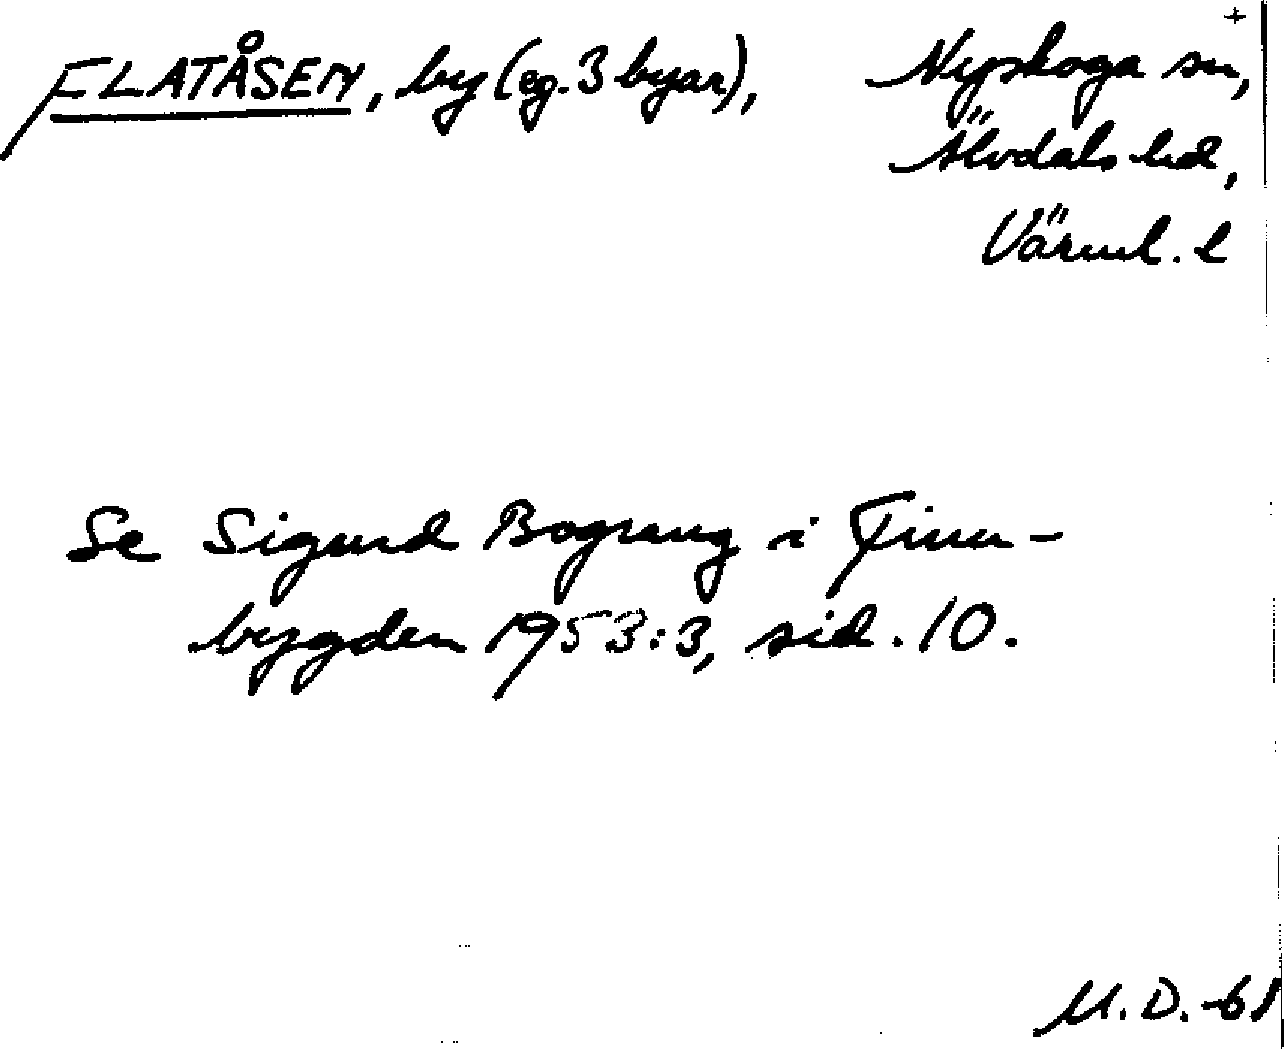 +
FLATÅSEN, by (eg. 3 byar), Nyskoga sn,
Älvdals hd,
Värml. l
Se Sigurd Bograng i Finn-
bygden 1953:3, sid. 10.
M.D.-68